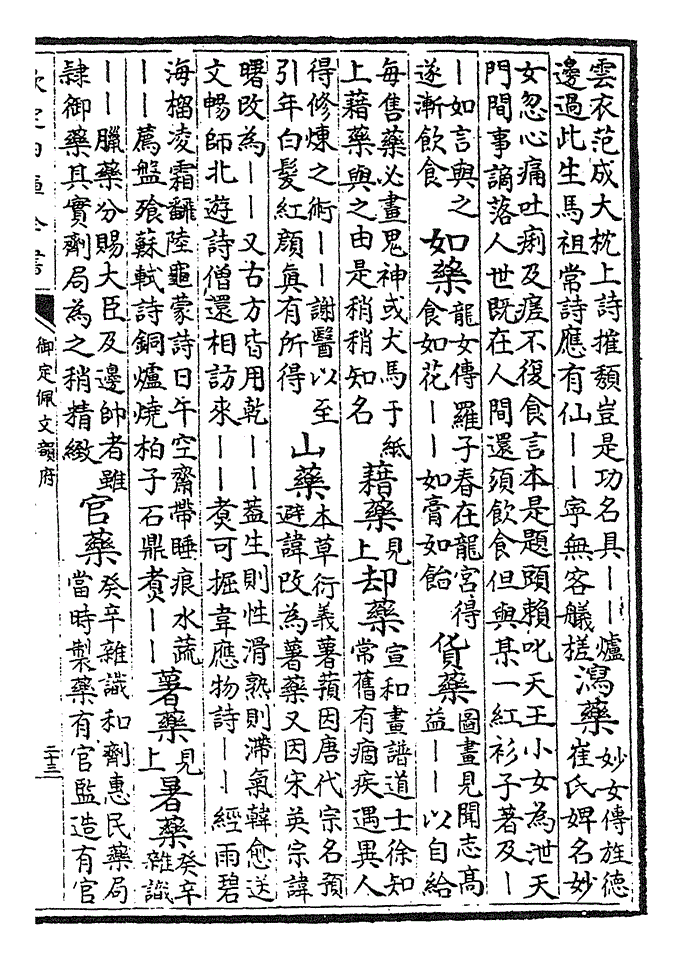 雲衣范成大枕上詩摧頽豈是功名具——爐
邊過此生馬祖常詩應有仙——寧無客艤槎
瀉藥
妙女傳旌德
崔氏婢名妙
女忽心痛吐痢及瘥不復食言本是題頭賴吒天王小女為泄天
門間事謫落人世既在人間還須飲食但與某一紅衫子著及—
—如言與之
遂漸飲食
如藥
龍女傳羅子春在龍宮得
食如花——如膏如飴
貨藥
圖畫見聞志高
益——以自給
每售藥必畫鬼神或犬馬于紙
上藉藥與之由是稍稍知名
藉藥
見
上
却藥
宣和畫譜道士徐知
常舊有痼疾遇異人
得修煉之術——謝醫以至
引年白髮紅顏眞有所得
山藥
本草衍義薯蕷因唐代宗名預
避諱改為薯藥又因宋英宗諱
曙改為——又古方皆用乾——蓋生則性滑熟則滯氣韓愈送
文暢師北遊詩僧還相訪來——煑可掘韋應物詩——經雨碧
海榴凌霜翻陸龜蒙詩日午空齋帶睡痕水蔬
——薦盤飱蘇軾詩銅爐燒柏子石鼎煑——
薯藥
見
上
暑藥
癸辛
雜識
——臘藥分賜大臣及邊帥者雖
隸御藥其實劑局為之稍精緻
官藥
癸辛雜識和劑惠民藥局
當時製藥有官監造有官
欽定四庫全書
御定佩文韻府
二十三